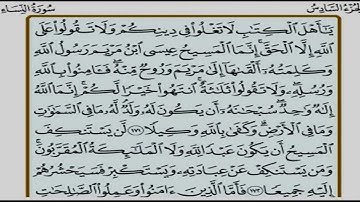 الجزء السادس سورة النساء
يَٰٓأَهۡلَ ٱلۡكِتَٰبِ لَا تَغۡلُواْ فِي دِينِكُمۡ وَلَا تَقُولُواْ عَلَى
ٱللَّهِ إِلَّا ٱلۡحَقَّۚ إِنَّمَا ٱلۡمَسِيحُ عِيسَى ٱبۡنُ مَرۡيَمَ رَسُولُ ٱللَّهِ
وَكَلِمَتُهُۥٓ أَلۡقَىٰهَآ إِلَىٰ مَرۡيَمَ وَرُوحٞ مِّنۡهُۖ فَـَٔامِنُواْ بِٱللَّهِ
وَرُسُلِهِۦۖ وَلَا تَقُولُواْ ثَلَٰثَةٌۚ ٱنتَهُواْ خَيۡرٗا لَّكُمۡۚ إِنَّمَا ٱللَّهُ
إِلَٰهٞ وَٰحِدٞۖ سُبۡحَٰنَهُۥٓ أَن يَكُونَ لَهُۥ وَلَدٞۘ لَّهُۥ مَا فِي ٱلسَّمَٰوَٰتِ
وَمَا فِي ٱلۡأَرۡضِۗ وَكَفَىٰ بِٱللَّهِ وَكِيلٗا ١٧١ لَّن يَسۡتَنكِفَ
ٱلۡمَسِيحُ أَن يَكُونَ عَبۡدٗا لِّلَّهِ وَلَا ٱلۡمَلَٰٓئِكَةُ ٱلۡمُقَرَّبُونَۚ
وَمَن يَسۡتَنكِفۡ عَنۡ عِبَادَتِهِۦ وَيَسۡتَكۡبِرۡ فَسَيَحۡشُرُهُمۡ
إِلَيۡهِ جَمِيعٗا ١٧٢ فَأَمَّا ٱلَّذِينَ ءَامَنُواْ وَعَمِلُواْ ٱلصَّٰلِحَٰتِ